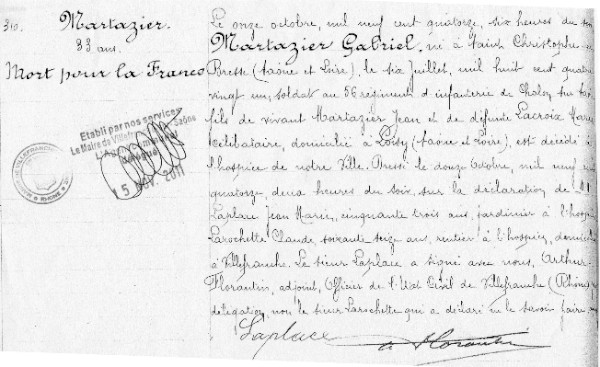 310.
Martazier.
33 ans.
Mort pour la France
Etabli par nos services
Le Maire de Villefranche Saône
15 NOV. 2011
Le onze octobre, mil neuf cent quatorze, six heures du soir
Martazier Gabriel, né à Saint Christophe en
Bresse (Saône et Loire), le six Juillet, mil huit cent quatre
vingt un, soldat au 56 régiment d'infanterie de
fils de vivant Martazier Jean et de défunte Lacroix Marie
célibataire, domicilié à Loisy (Saône et Loire), est décédé à
l'hospice de notre Ville. Dressé le douze Octobre, mil neuf cent
quatorze, deux heures du soir, sur la déclaration de M
Laplace Jean Marie, cinquante trois ans, jardinier à l'hospice
Larochette Claude, soixante seize ans, rentier à l'hospice, domiciliés
à Villefranche. Le sieur Laplace a signé avec nous, Arthur
Florantin, adjoint, Officier de l'Etat Civil de Villefranche (Rhône)
délégation, non le sieur Larochette qui a déclaré ne le savoir faire
Laplace a Florantin